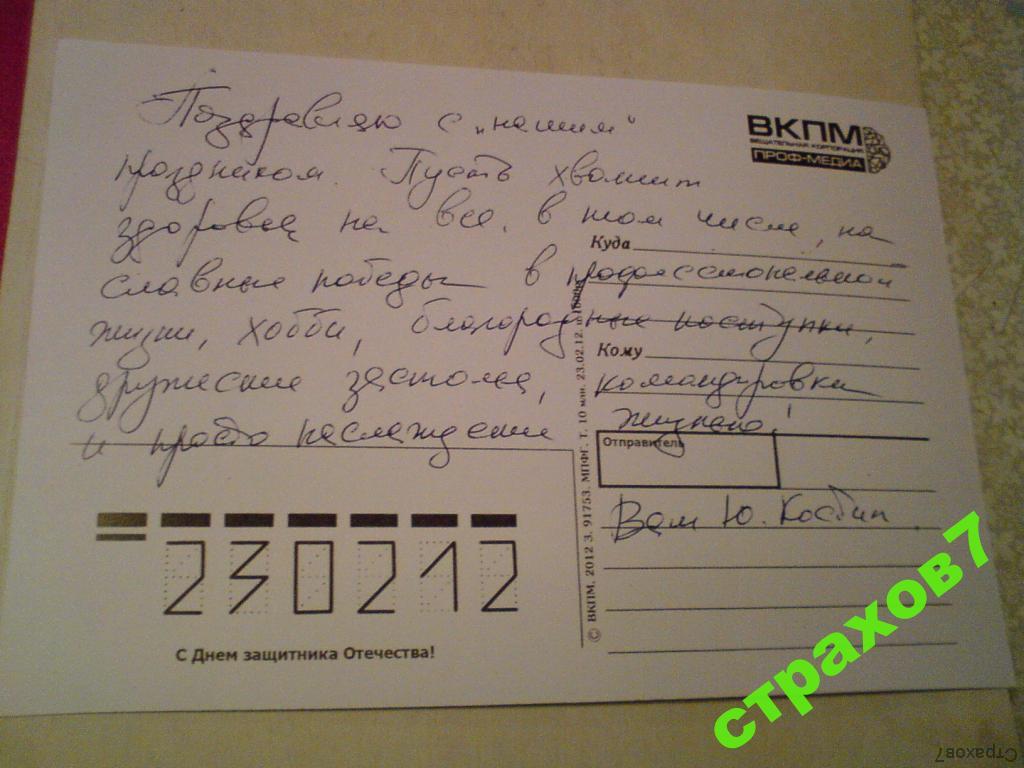 Поздравляю с „нашим“
праздником. Пусть хватит
здоровья на все, в том числе, на
славные победы в профессиональной
жизни, хобби, благородные поступки,
дружеские застолья, командировки
и просто наслаждение жизнью!
Ваш Ю. Костин
ВКПМ
ВЕЩАТЕЛЬНАЯ КОРПОРАЦИЯ
ПРОФ-МЕДИА
Куда
Кому
Отправитель
© ВКПМ, 2012 З. 91753. МПФГ. Т. 10 млн. 23.02.12.
230212
С Днем защитника Отечества!
страхов7
Страхов7